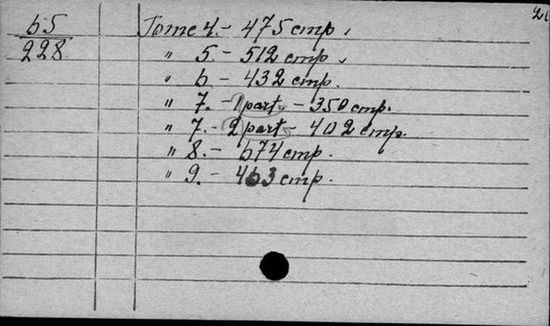 65
228
Tome 4. - 475 стр.
" 5. - 512 стр.
" 6 - 432 стр.
" 7. - 1 part. - 350 стр.
" 7. - 2 part. - 402 стр.
" 8. - 674 стр.
" 9. - 463 стр.